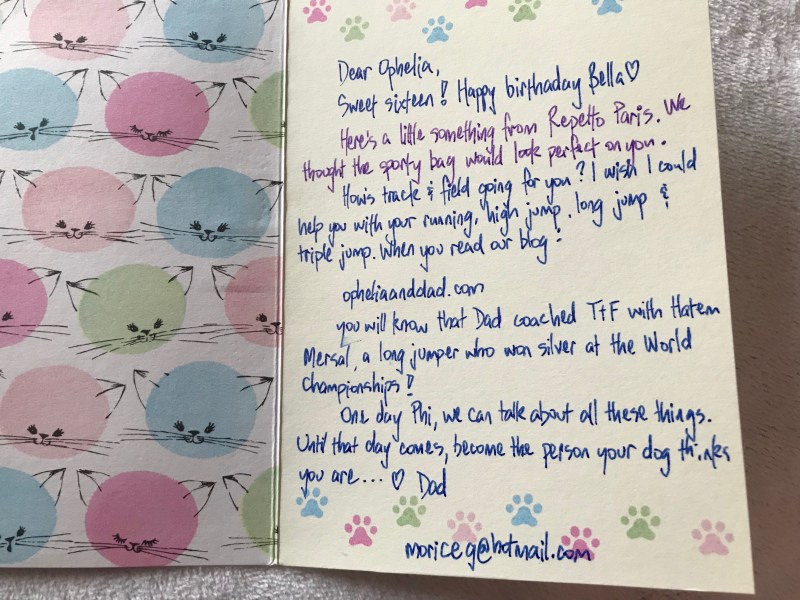 Dear Ophelia,
Sweet sixteen! Happy birthaday Bella♡
Here's a little something from Repetto Paris. We
thought the sporty bag would look perfect on you.
How's track & field going for you? I wish I could
help you with your running, high jump, long jump &
triple jump. When you read our blog:
opheliaanddad.com
you will know that Dad coached T+F with Hatem
Mersal, a long jumper who won silver at the World
Championships!
One day Phi, we can talk about all these things.
Until that day comes, become the person your dog thinks
you are... ♡ Dad
moriceg@hotmail.com